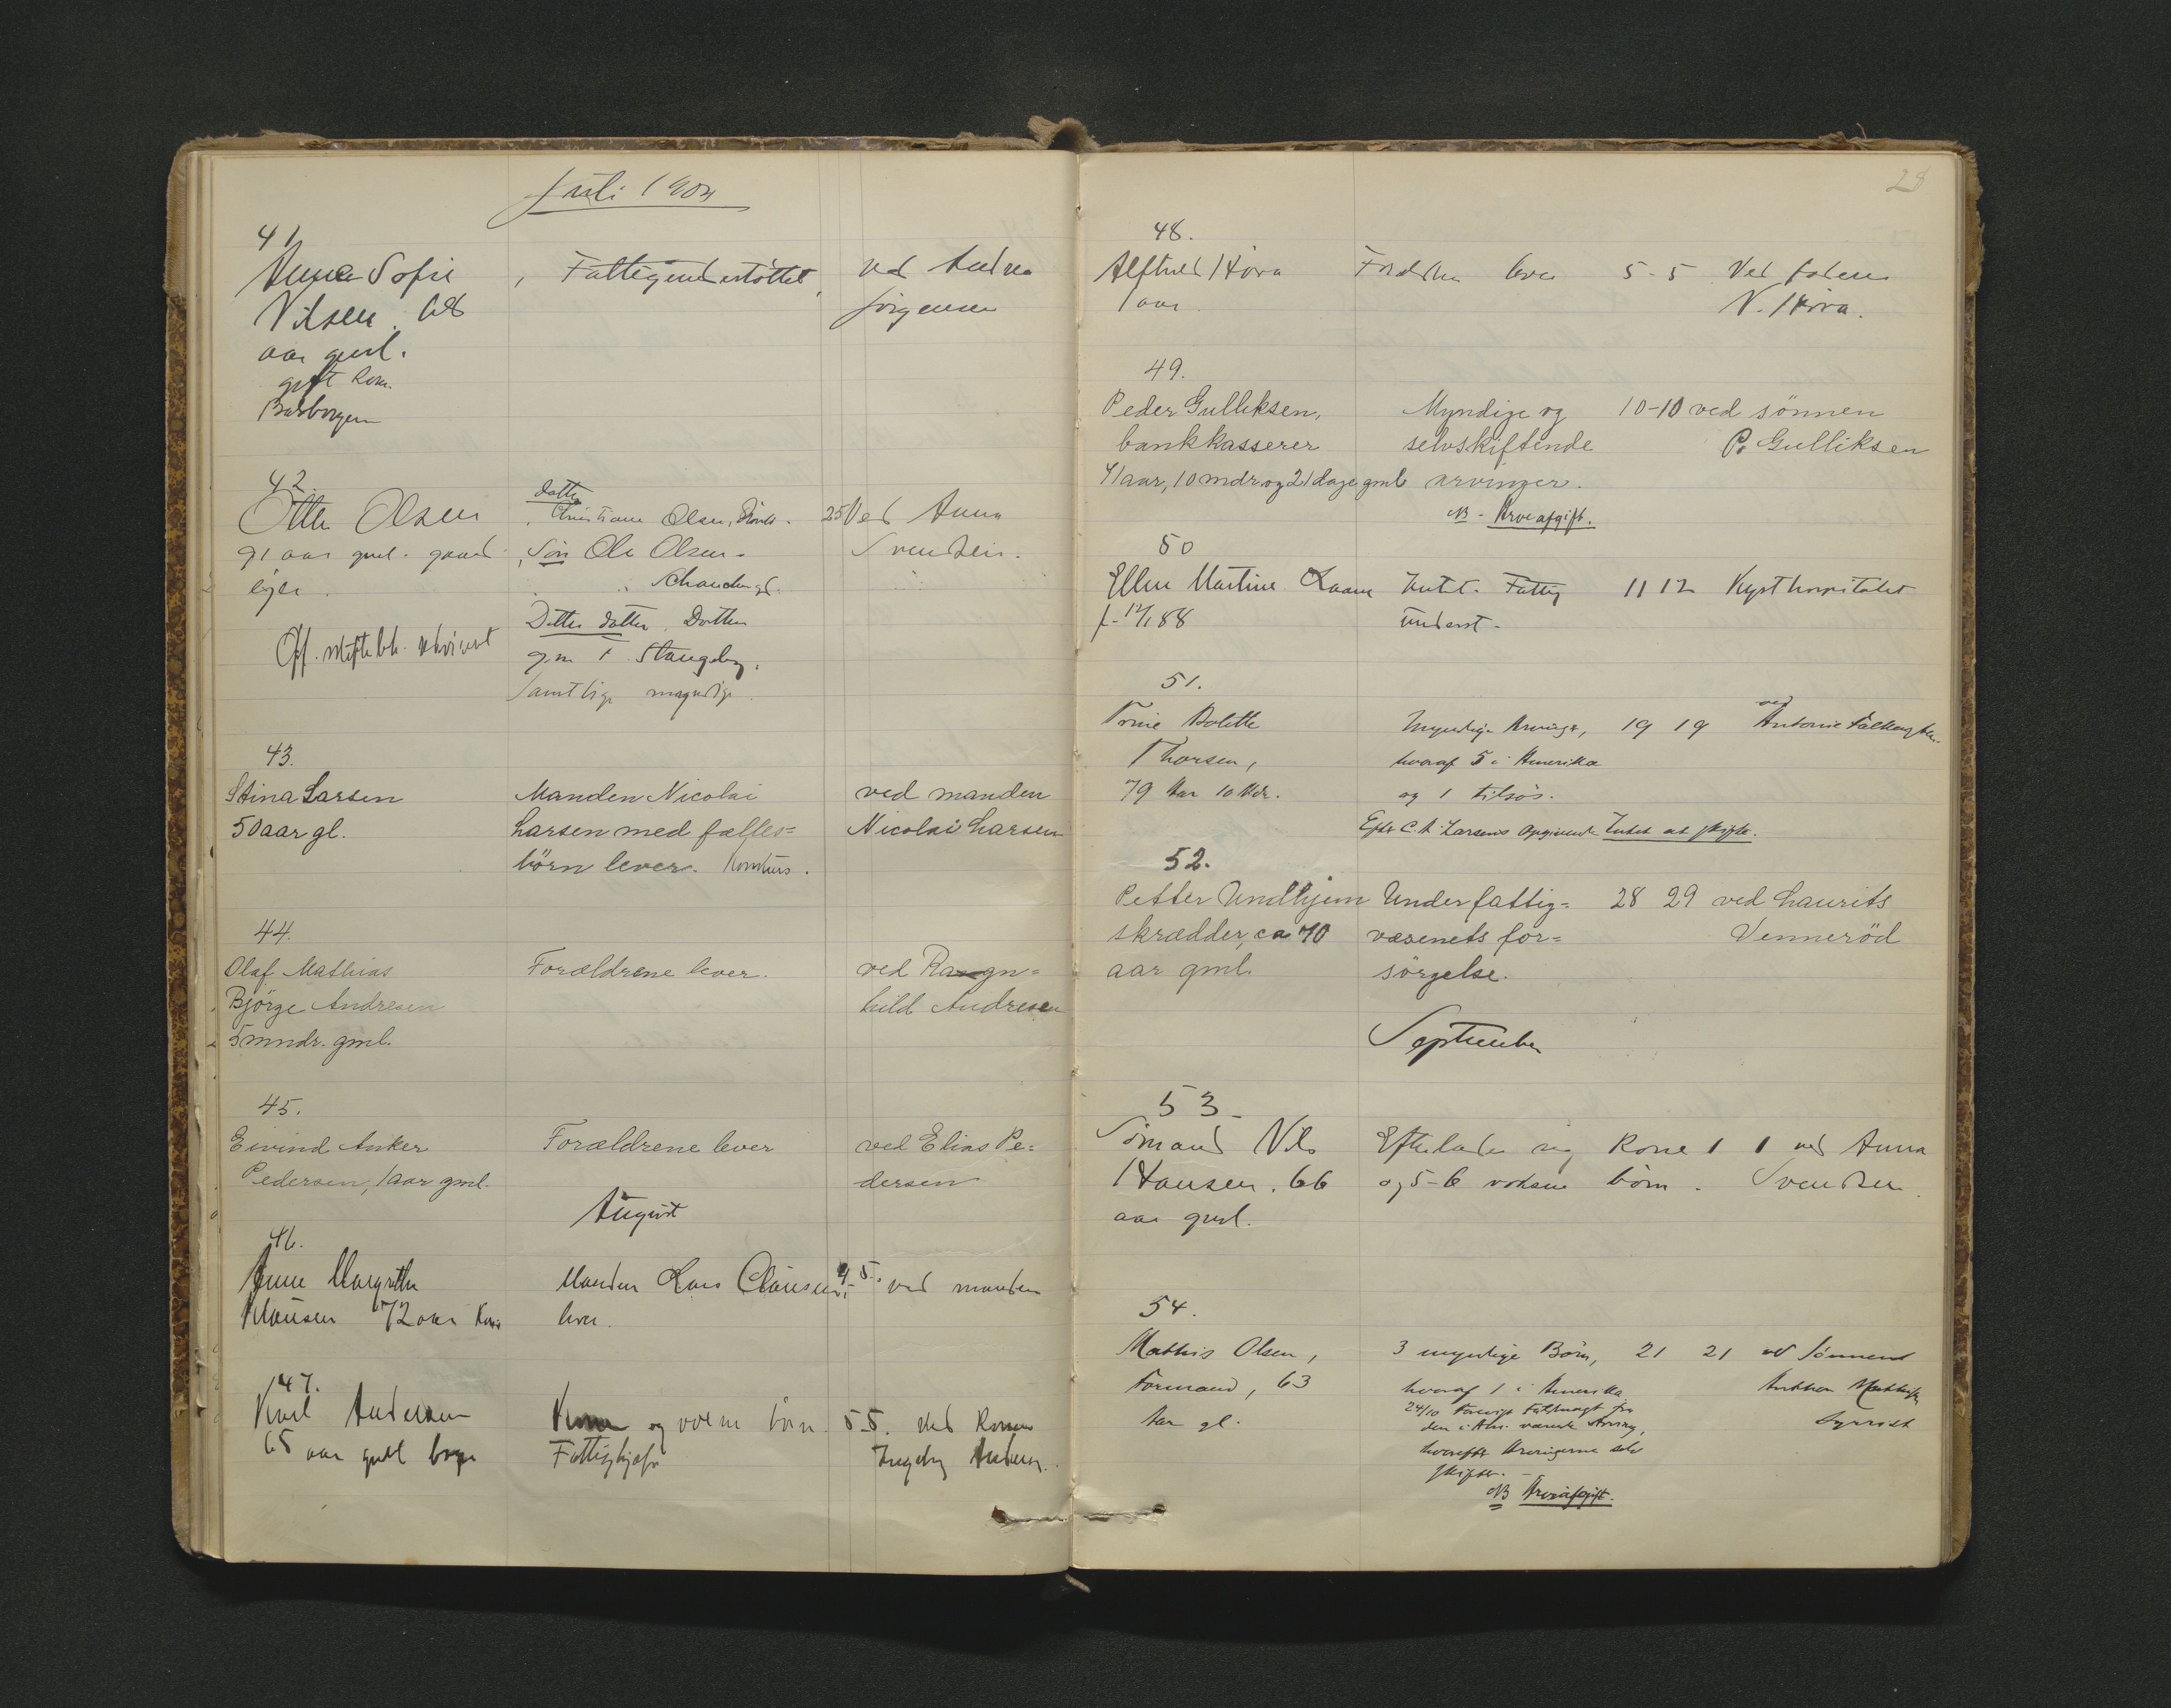 Juli 1904
41
Anna Sofie
Nilsen. 68
aar gml.
gift kone.
, Fattigunderstöttet,
ved Andrea
Jörgensen
42.
Otter Olsen
91 aar gml. gaard
ejer.
Off. skiftebh.
datter
, Christiane Olsen,
, Sön Ole Olsen -
Datter datter. Dorthea
g.m. T. Stangeby.
Samtlige myndige.
25 Ved Anna
Svendsen.
43.
Stina Larsen
50 aar gl.
Manden Nicolai
Larsen med fælles=
börn lever. Konkurs.
ved manden
Nicolai Larsen
44.
Olaf Mathias
Björge Andresen
5 mndr. gml.
Forældrene lever.
ved Ragn=
hild Andresen
45.
Eivind Anker
Pedersen, 1 aar gml.
Forældrene lever
ved Elias Pe=
dersen
August
46.
Anne Margrethe
Klausen 72 aar Kone
Manden Lars Clausen
lever.
4. 5. ved manden
47.
Karl Andersen
65 aar gml
Kone og voksne börn.
Fattighjælp
5-5. Ved Konen
Ingeborg Andersen.
28
48.
Alfhild Hóva
1 aar
Forældre lever
5-5 Ved faderen
N. Hóva.
49.
Peder Gulliksen,
bankkasserer
41 aar, 10 mdr. og 21 dage gml
Myndige og
selvskiftende
arvinger.
NB - Arveafgift.
10-10 ved sönnen
P. Gulliksen
50
Ellen Martine
f. 12/1 88
Intet. Fattig
underst.
11 12 Kysthospitalet
51.
Trine Bolette
Thorsen,
79 Aar 10 Mdr.
Myndige Arvinger,
hvoraf 5 i Amerika
og 1 tilsös.
Efter C. A. Larsens Opgivende Intet at skifte.
19 19 ved
Antonie
52.
Petter Undhjem
skrædder, ca 70
aar gml.
Under fattig=
væsenets for=
sörgelse.
28 29 ved Laurits
Venneröd
September
53
Sömand Nils
Hansen. 66
aar gml.
Efterlader sig Kone
og 5-6 voksne börn.
1 1 ved Anna
Svendsen.
54.
Mathis Olsen,
Formand, 63
Aar gl.
3 myndige Börn,
hvoraf 1 i Amerika
24/10 Foreligt Fuldmagt fra
den i Am. værende Arving,
hvorefter Arvingerne selv
skifter. -
NB Arveafgift.
21 21 ved Sönnen
Anthon